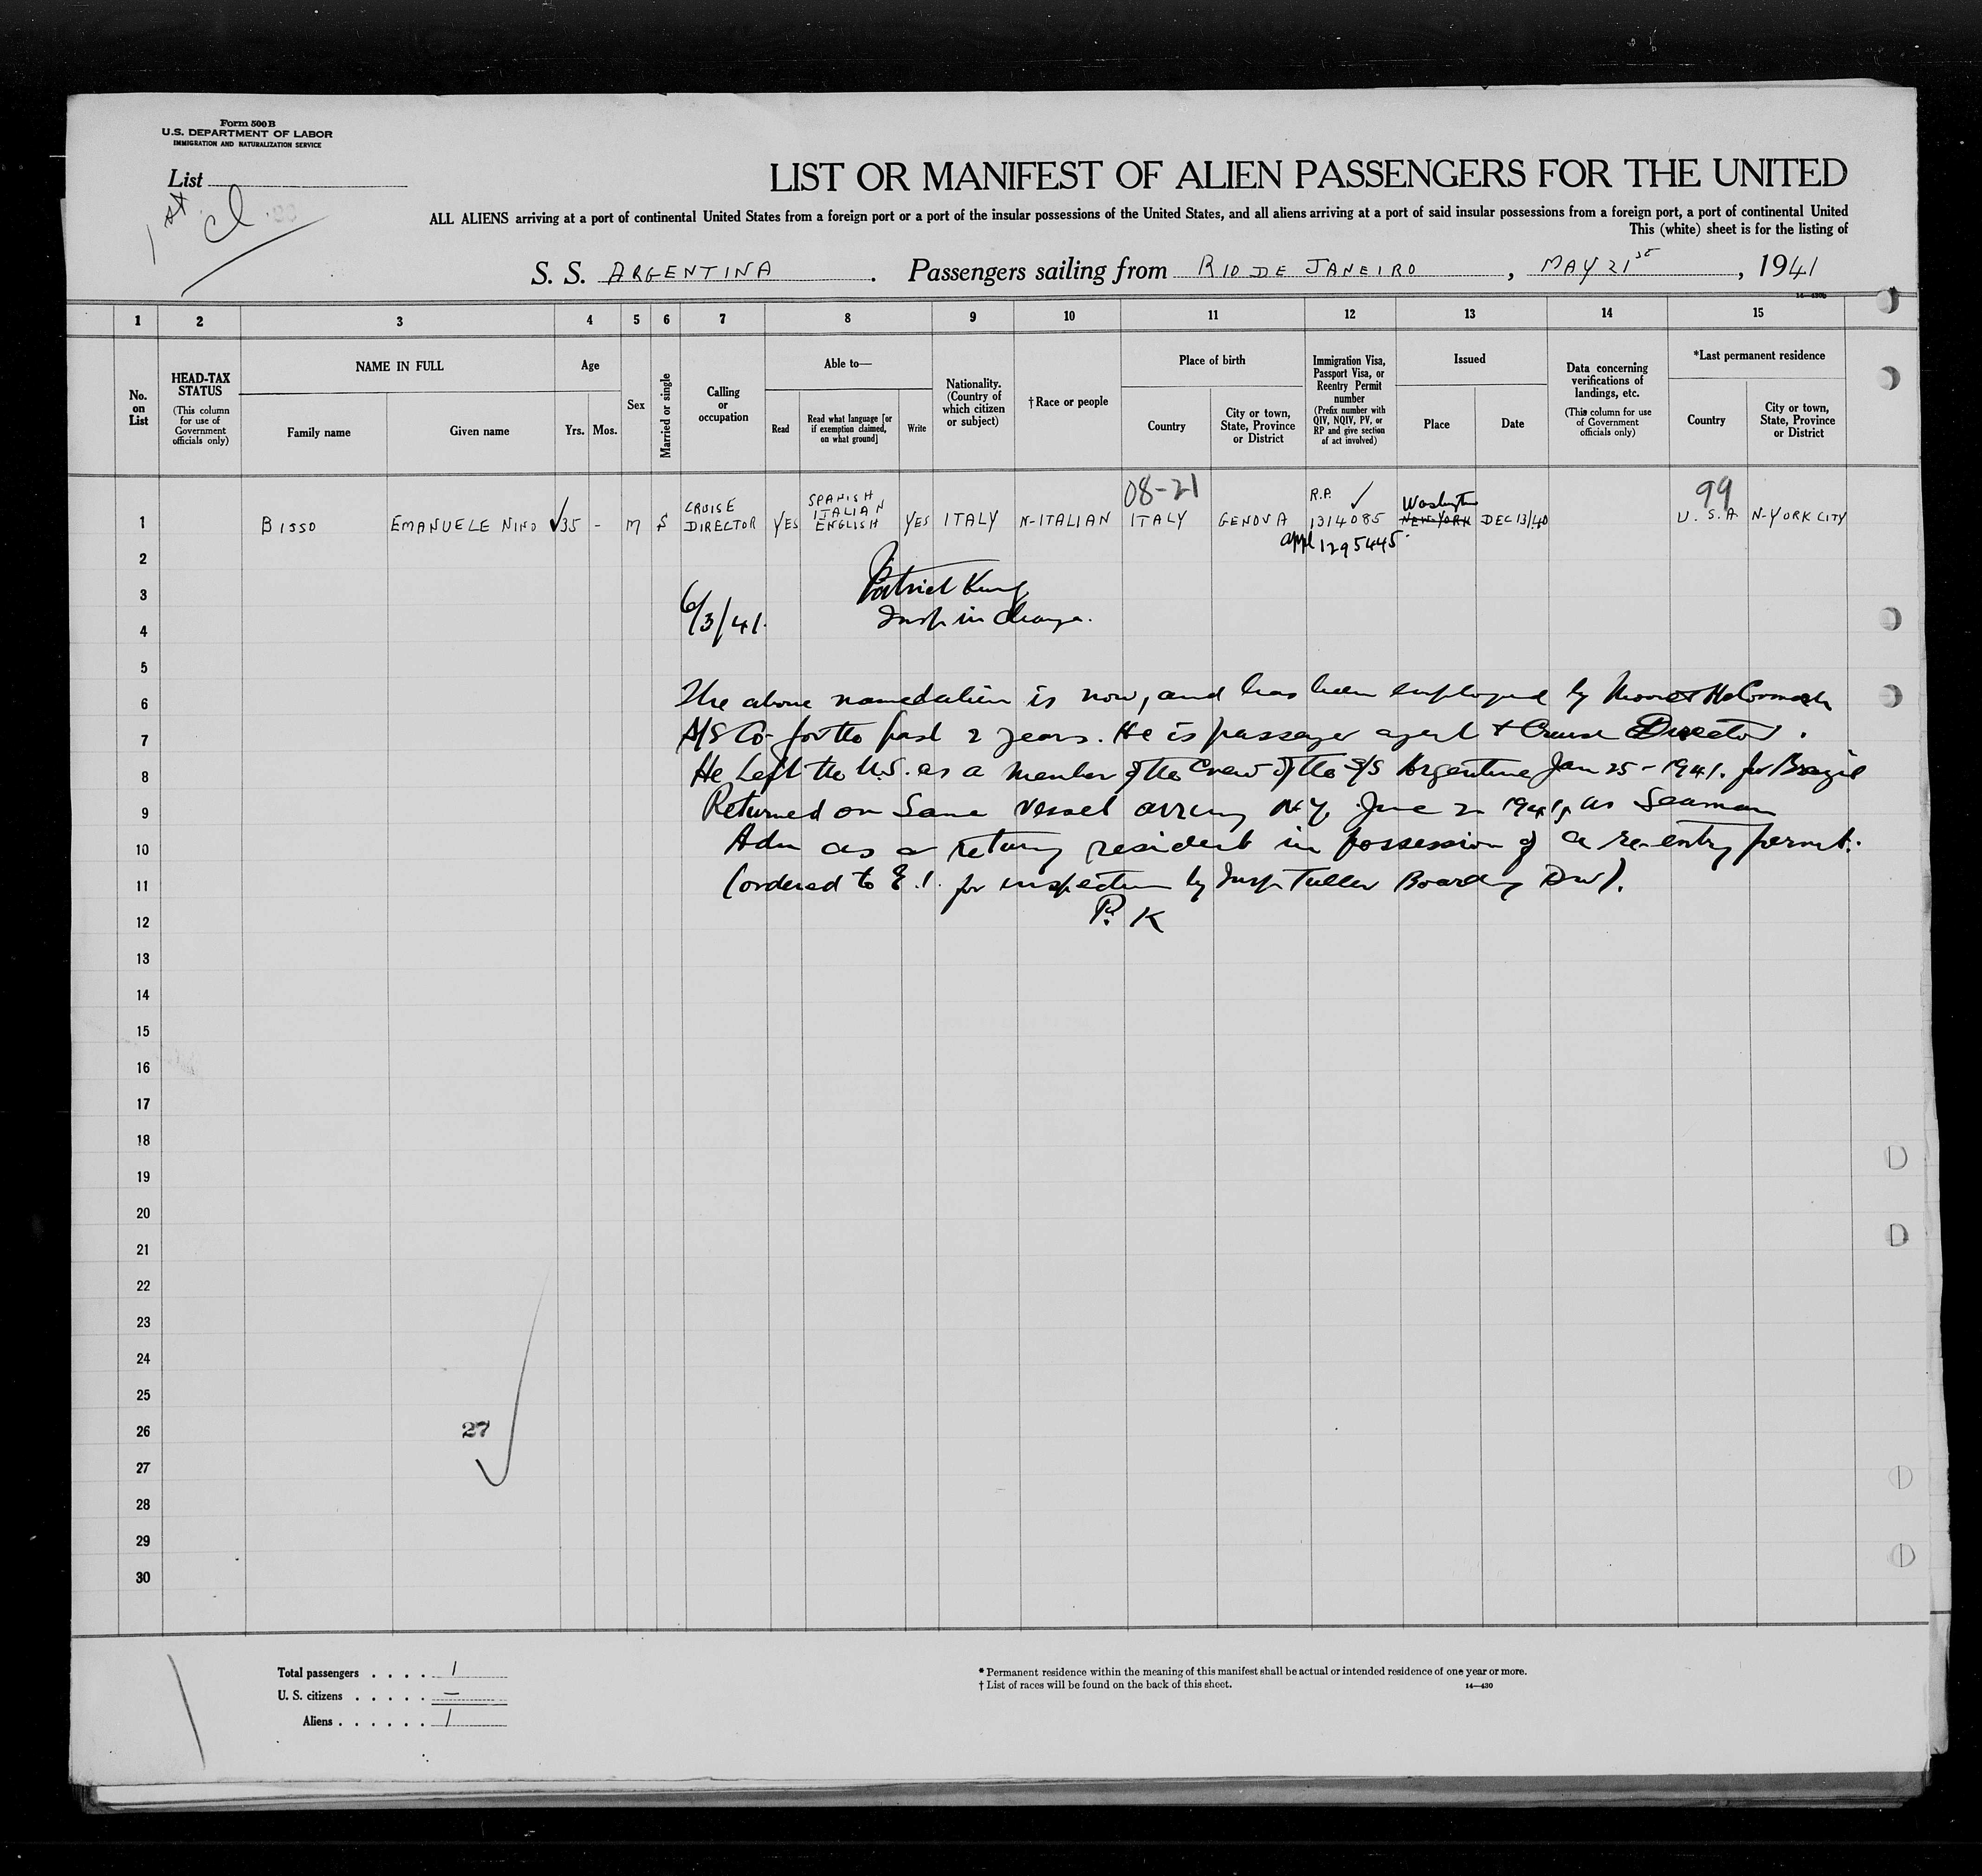 Form 500 B
U.S. DEPARTMENT OF LABOR
IMMIGRATION AND NATURALIZATION SERVICE
List
1st cl.
LIST OR MANIFEST OF ALIEN PASSENGERS FOR THE UNITED
ALL ALIENS arriving at a port of continental United States from a foreign port or a port of the insular possessions of the United States, and all aliens arriving at a port of said insular possessions from a foreign port, a port of continental United
This (white) sheet is for the listing of
S. S. ARGENTINA. Passengers sailing from RIO DE JANEIRO, MAY 21st, 1941
14—430b
1 2 3 4 5 6 7 8 9 10 11 12 13 14 15
No. on List
HEAD-TAX STATUS
(This column for use of Government officials only)
NAME IN FULL
Family name
Given name
Age
Yrs. Mos.
Sex
Married or single
Calling or occupation
Able to—
Read
Read what language [or if exemption claimed, on what ground]
Write
Nationality. (Country of which citizen or subject)
†Race or people
Place of birth
Country
City or town, State, Province or District
Immigration Visa, Passport Visa, or Reentry Permit number
(Prefix number with QIV, NQIV, PV, or RP and give section of act involved)
Issued
Place
Date
Data concerning verifications of landings, etc.
(This column for use of Government officials only)
*Last permanent residence
Country
City or town, State, Province or District
08-21
R.P. ✓
99
1 BISSO EMANUELE NINO ✓35 - M S CRUISE DIRECTOR YES SPANISH ITALIAN ENGLISH YES ITALY N-ITALIAN ITALY GENOVA 1314085 Washington NEW-YORK DEC 13/40 U.S.A N-YORK CITY
appl 1295445.
2
3 Patrick King
4 6/3/41. Insp in Charge.
5
6 The above named alien is now, and has been employed by Moore & McCormack
7 S/S Co for the past 2 years. He is passenger agent & Cruise Director.
8 He Left the U.S. as a member of the crew of the S/S Argentina Jan 25-1941. for Brazil
9 Returned on Same vessel arriving N.Y. June 2 1941, as Seaman
10 Adm as a returng resident in possession of a re-entry permit.
11 (ordered to E.I. for inspection by Insp Tuller Boarding Div).
12 P. K
13
14
15
16
17
18
19
20
21
22
23
24
25
26 27
27
28
29
30
Total passengers . . . . 1
U. S. citizens . . . . . —
Aliens . . . . . . 1
* Permanent residence within the meaning of this manifest shall be actual or intended residence of one year or more.
† List of races will be found on the back of this sheet.
14—430